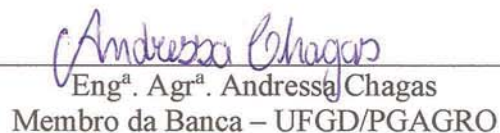 Andressa Chagas
Engª. Agrª. Andressa Chagas
Membro da Banca – UFGD/PGAGRO